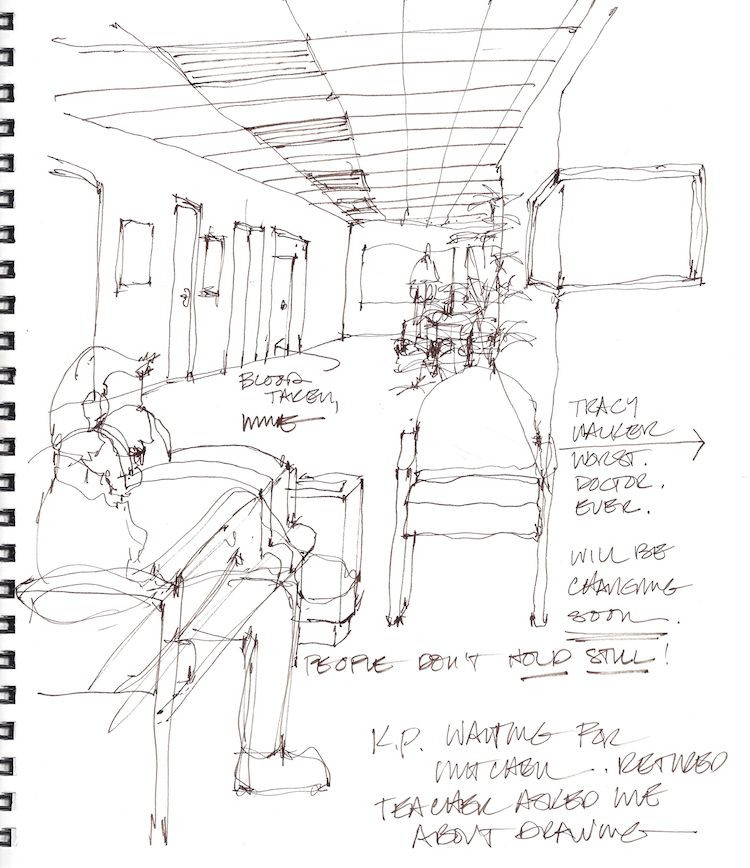 BLOOD
TAKEN,
MINE
TRACY
WALKER
WORST.
DOCTOR.
EVER.
WILL BE
CHANGING
SOON.
PEOPLE DON'T HOLD STILL!
K.P. WAITING FOR
MITCHELL.. RETIRED
TEACHER ASKED ME
ABOUT DRAWING